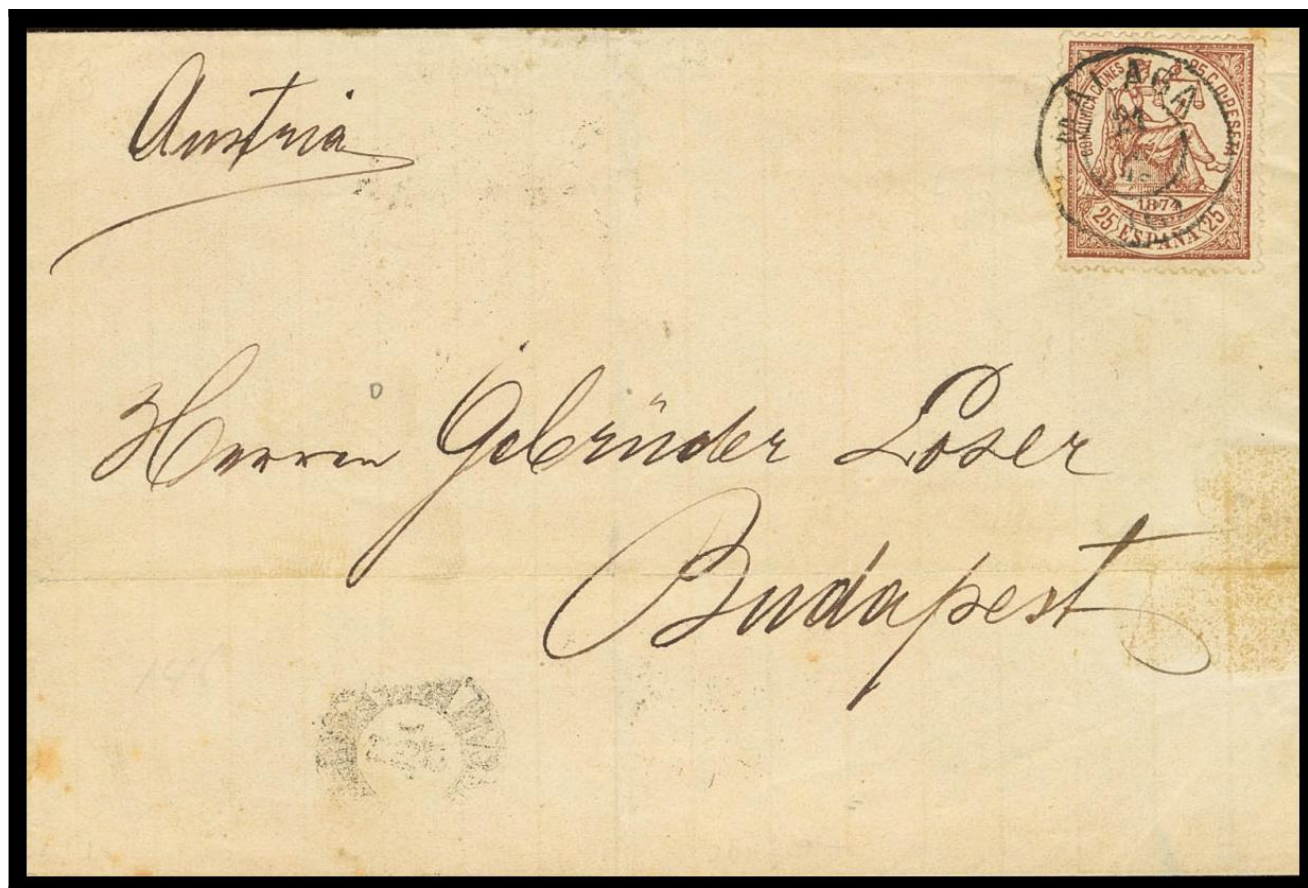 Austria
COMUNICACIONES 25 C. D. PESETA
MALAGA
24
1874
25 ESPAÑA 25
Herren Gebrüder Loser
Budapest